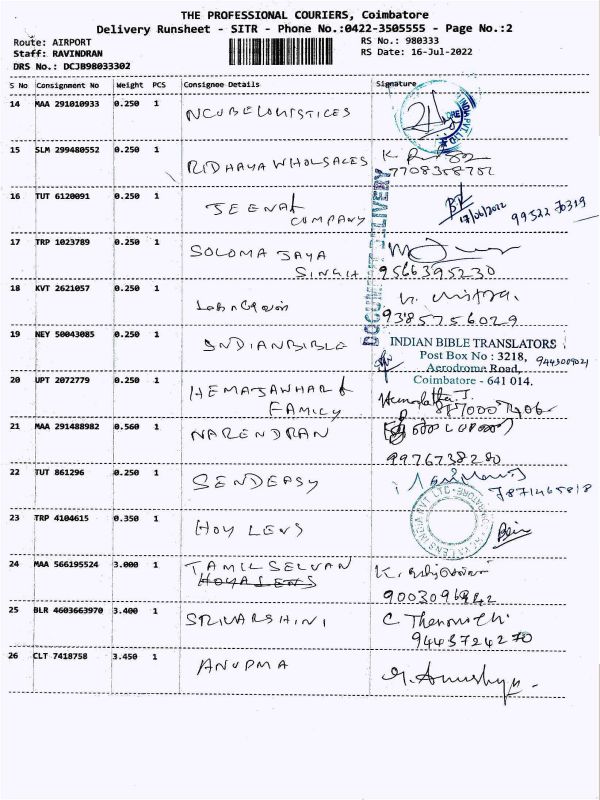 THE PROFESSIONAL COURIERS, Coimbatore
Delivery Runsheet - SITR - Phone No.:0422-3505555 - Page No.:2
Route: AIRPORT
RS No.: 980333
Staff: RAVINDRAN
RS Date: 16-Jul-2022
DRS No.: DCJB98033302
S No Consignment No Weight PCS Consignee Details Signature
14 MAA 291010933 0.250 1 NCUBELOGISTICES
15 SLM 299480552 0.250 1 RIDHAYA WHOLSALES K
7708358752
16 TUT 6120091 0.250 1 JEENA &
COMPANY
17/06/2022 99522 70319
17 TRP 1023789 0.250 1 SOLOMA JAYA
SINGH 9566395230
18 KVT 2621057 0.250 1
9385756029
DOCUMENT DELIVERY
19 NEY 50043085 0.250 1 INDIANBIBLE
INDIAN BIBLE TRANSLATORS
Post Box No : 3218,
Aerodrome Road,
Coimbatore - 641 014.
20 UPT 2072779 0.250 1 HEMAJAWHAR &
FAMILY
Hemalatha.J.
21 MAA 291488982 0.560 1 NARENDRAN
9976738280
22 TUT 861296 0.250 1 SENDEASY
7871465818
23 TRP 4104615 0.350 1 HOY LENS
24 MAA 566195524 3.000 1 TAMILSELVAN
HOYALENS
K.
25 BLR 4603663970 3.400 1 SRIVARSHINI C
9443724270
26 CLT 7418758 3.450 1 ANUPMA